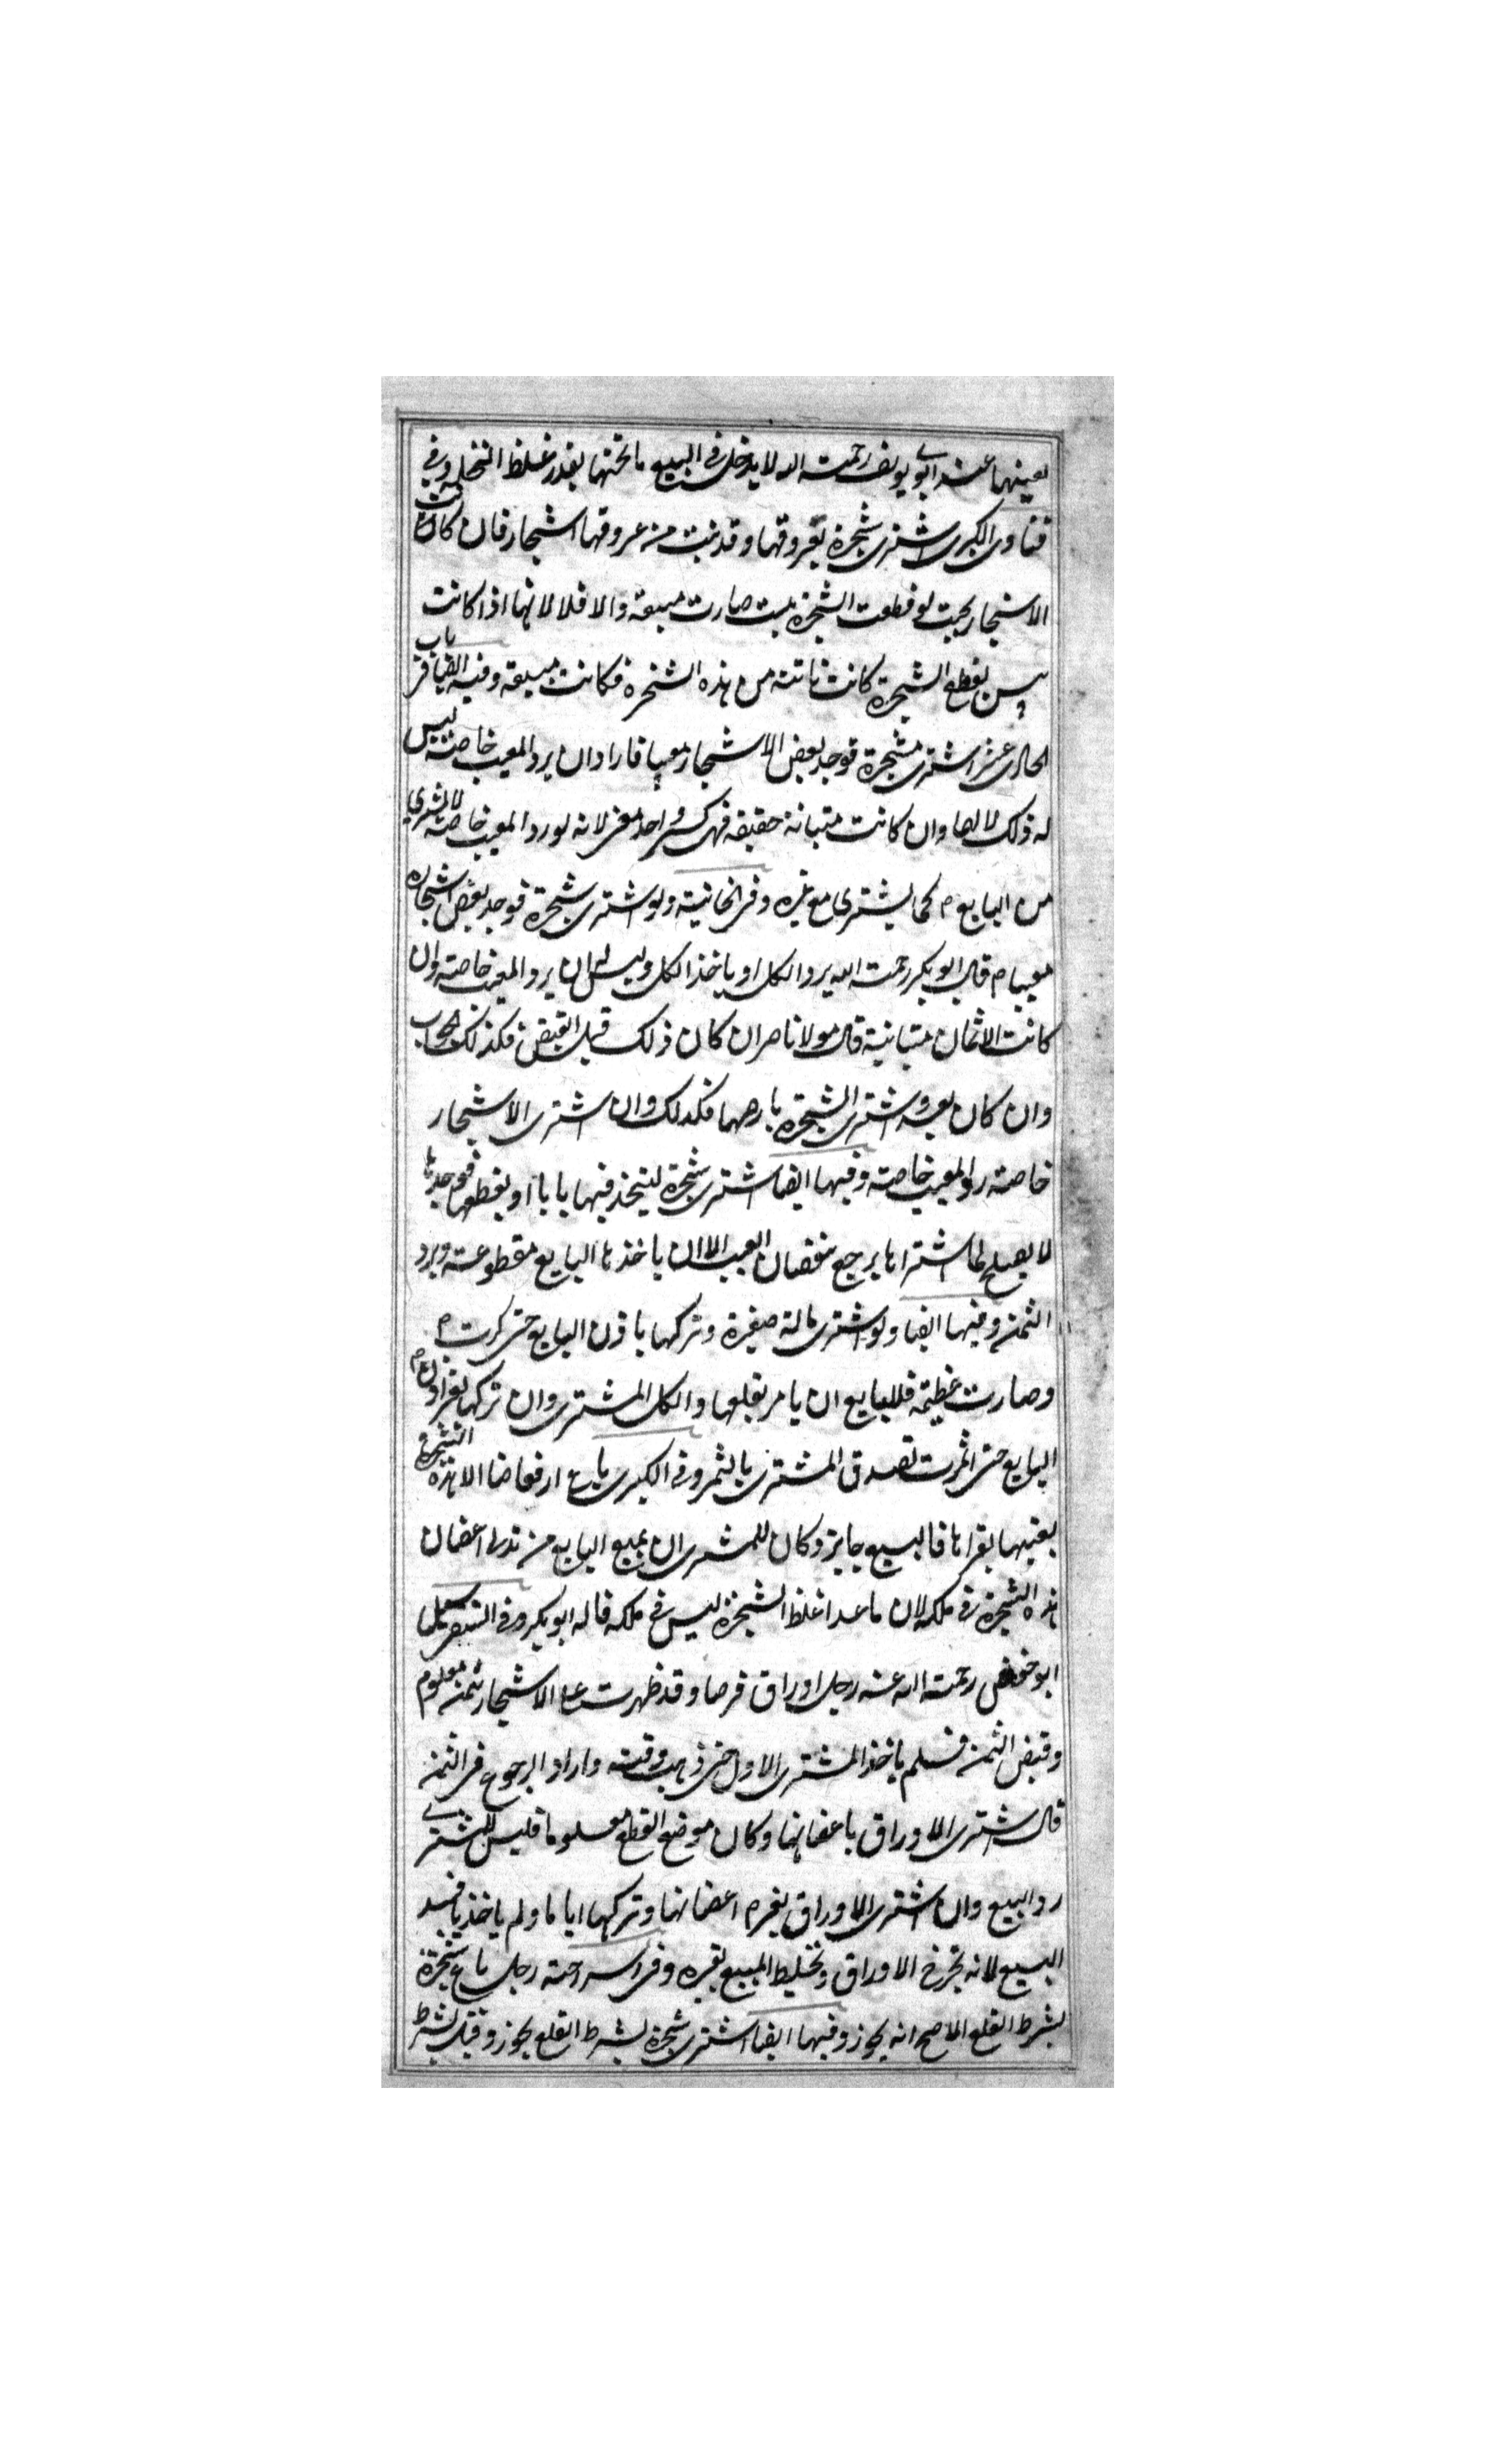 بعينهما عند ابى يوسف رحمت الله لا يدخل فى البيع ما تحتها بقدر غلظ النخلة وفى
فتاوى الكبرى اشترى شجرة بعروقها وقد نبت من عروقها اشجار فان كانت
الاشجار بحيث لو قطعت الشجرة يبست صارت مبيعة والا فلا لانها اذا كانت
ييبس بقطع الشجرة كانت نابتة من هذه الشجرة فكانت مبيعة وفيه ايضا فى باب
الحادى عشر اشترى مشجرة فوجد بعض الاشجار معيبا فاراد ان يرد المعيب خاصته ليس
له ذلك لانها وان كانت متبانة حقيقه فهى كشى واحد معنى لانه لو رد المعيب خاصة لا المشترى
من البايع م كما يشترى مع غيره وفى الخانية ولو اشترى شجرة فوجد بعض اشجاره
معيبا م قال ابو بكر رحمت الله يرد الكل او ياخذ الكل وليس له ان يرد المعيب خاصته وان
كانت الاثمان متبانية قال مولانا صران كان ذلك قبل القبض فكذلك الجواب
وان كان بعده اشترى الشجرة بارضها فكذلك وان اشترى الاشجار
خاصته رد المعيب خاصته وفيها ايضا اشترى شجرة ليتخذ فيها بابا او يقطعها فوجدها
لا يصلح لما اشتراها يرجع بنقصان العيب الا ان ياخذها البايع مقطوعته ويرد
الثمن وفيها ايضا ولو اشترى نالة صغيرة وتركها باذن البايع حتى كبرت م
وصارت عظيمة فللبايع ان يامر بقلعها والكل المشترى وان تركها بغير اذن م
البايع حتى اثمرت تصدق المشترى بالثمر وفى الكبرى باع ارضا الا هذه الشجرة
بعينها بقراها فالبيع جايز وكان للمشترى ان يمنع البايع من تدلى اغصان
هذه الشجرة فى ملكه لان ما عدا غلظ الشجرة ليس فى ملكه قاله ابو بكر وفى
ابو حفص رحمته الله عنه رجل اوراق فرصا وقد ظهرت على الاشجار بثمن معلوم
وقبض الثمن فلم ياخذ المشترى الاول حتى ذهب وقته واراد الرجوع فى الثمن
قال اشترى الاوراق باغصانها وكان موضع القطع معلوما فليس للمشترى
رد البيع وان اشترى الاوراق بغيره اغصانها وتركها اياما ولم ياخذها فسد
البيع لانه تخرج الاوراق وتخليط المبيع بغيره وفى السراجته رجل باع شجرة
بشرط القلع الاصح انه يجوز وفيها ايضا اشترى شجرة بشرط القلع يجوز وقيل يشرط